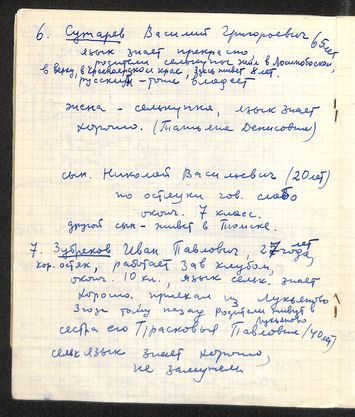 6. Сутарев Василий Григорович 65 лет
язык знает прекрасно
родители селькупы жив в
в верх, в Красноярском крае, здесь живет 8 лет.
русским - тоже владеет
жена - селькупка, язык знает
хорошо. (Татьяна Денисовна)
сын. Николай Васильевич (20 лет)
по остяцки гов. слабо
оконч. 7 класс.
другой сын - живет в Томске.
7. Зубреков Иван Павлович, 27 лет
кор. остяк, работает зав клубом,
оконч. 10 кл., язык сельк. знает
хорошо. приехал из
2 года тому назад родители живут в
сестра его Прасковья Павловна (40 лет)
сельк язык знает хорошо,
не замужем